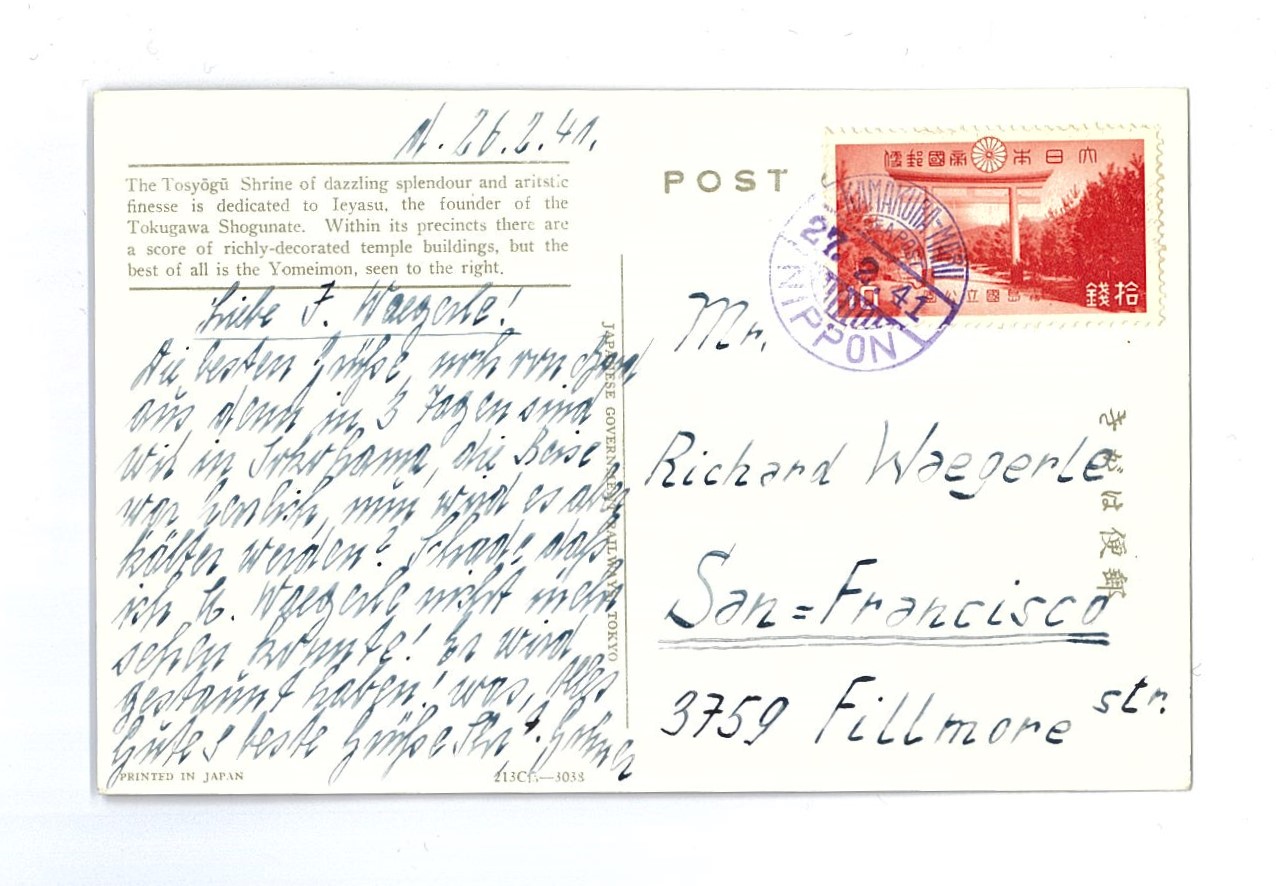 d. 26.2.41.
The Tosyōgū Shrine of dazzling splendour and aritstic
finesse is dedicated to Ieyasu, the founder of the
Tokugawa Shogunate. Within its precincts there are
a score of richly-decorated temple buildings, but the
best of all is the Yomeimon, seen to the right.
Liebe F. Waegerle!
Die besten Grüße, noch von Bord
aus denn in 3 Tagen sind
wir in Jokohama, die Reise
war herrlich, nun wird es aber
kälter werden? Schade daß
ich H. Waegerle nicht mehr
sehen konnte! Er wird
gestaunt haben! was, Alles
Gute & beste Grüße
PRINTED IN JAPAN
213C—3038
JAPANESE GOVERNMENT RAILWAYS, TOKYO
POST
大日本帝國郵便
拾錢
10
27. 2. 41
NIPPON
Mr.
Richard Waegerle
San=Francisco
3759 Fillmore str.
郵便はがき